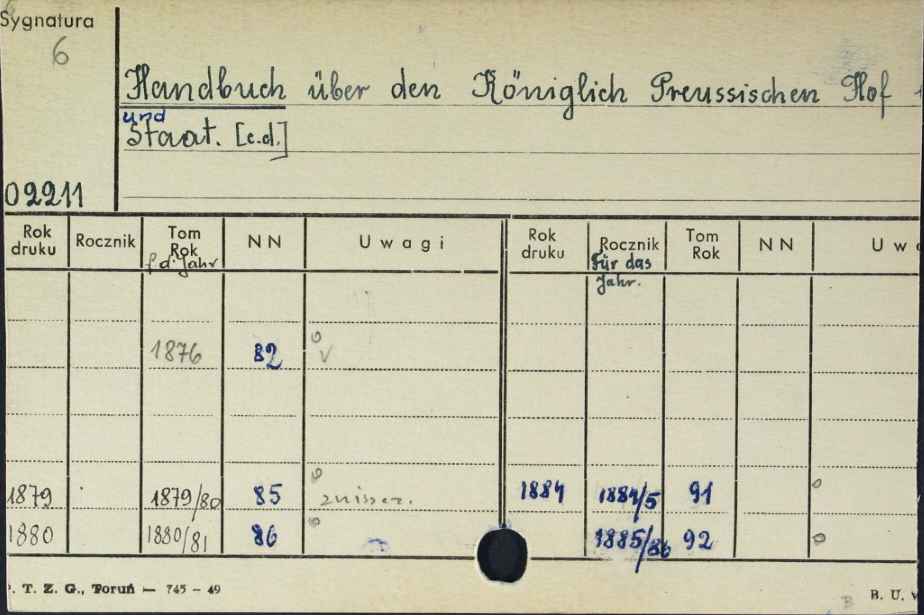 Sygnatura
6
Handbuch über den Königlich Preussischen Hof
und
Staat. [c.d.]
02211
Rok druku Rocznik Tom Rok f. d. Jahr NN Uwagi Rok druku Rocznik Für das Jahr. Tom Rok NN
1876 82 v
1879 1879/80 85 zniszcz. 1884 1884/5 91
1880 1880/81 86 1885/86 92
. T. Z. G., Toruń — 745 - 49 B. U.